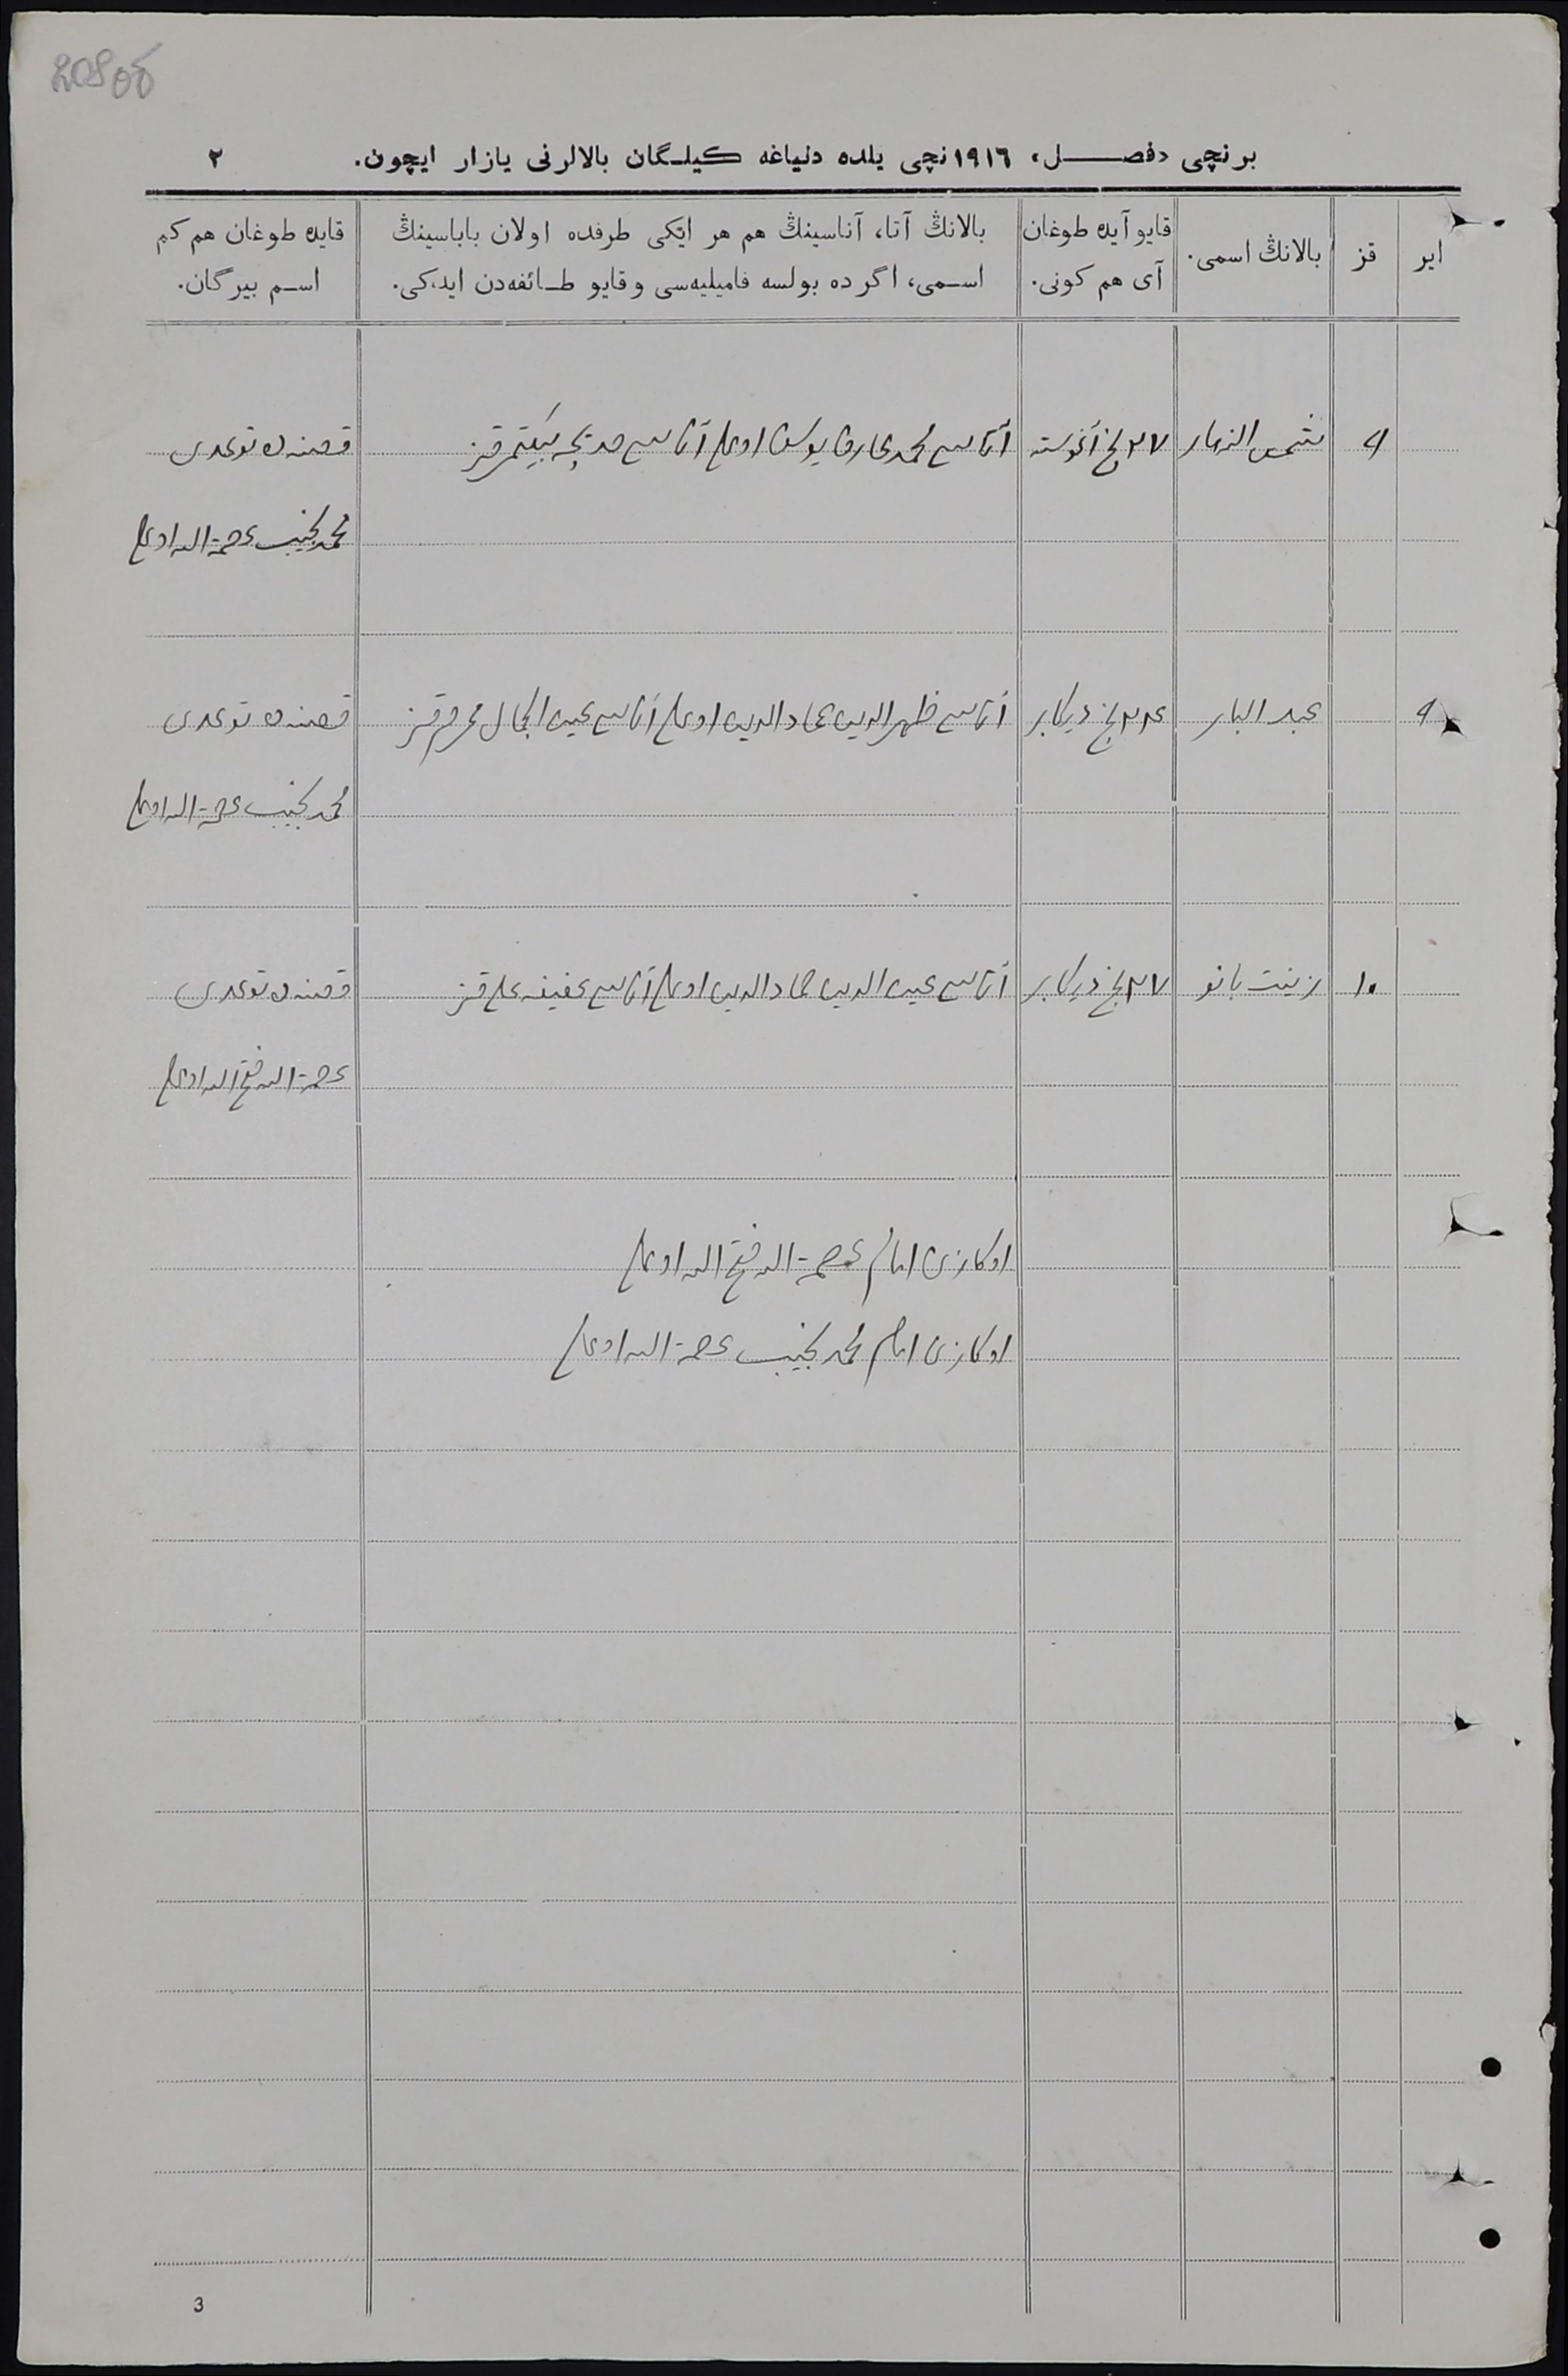 برنچی «فصل» ١٩١٦نچی یلده دنیاغه کیلگان بالالرنی یازار ایچون.
٢
ایر
قز
بالانڭ اسمی.
قایو آیده طوغان
آی هم کونی.
بالانڭ آتا، آناسینڭ هم هر ایکی طرفده اولان باباسینڭ
اسمی، اگر ده بولسه فامیلیه‌سی و قایو طائفه‌دن ایدکی.
قایده طوغان هم کم
اسم بیرگان.
٩
شمس النهار
٢٧ نچی آغوسته
آتاسی محمد عارف یوسف اوغلی آناسی خدیجه بیکتمر قز
توغدی
محمد نجیب عصمة الله اوغلی
٩
عبد البار
٢٤ نچی دیکابر
آتاسی ظهر الدین عماد الدین اوغلی آناسی عین الجمال محرم قز
توغدی
محمد نجیب عصمة الله اوغلی
١٠
زینت بانو
٢٧ نچی دیکابر
آتاسی عین الدین عماد الدین اوغلی آناسی عفیفه علی قز
توغدی
عصمة الله فتح الله اوغلی
اوکازنی امام عصمة الله فتح الله اوغلی
اوکازنی امام محمد نجیب عصمة الله اوغلی
3